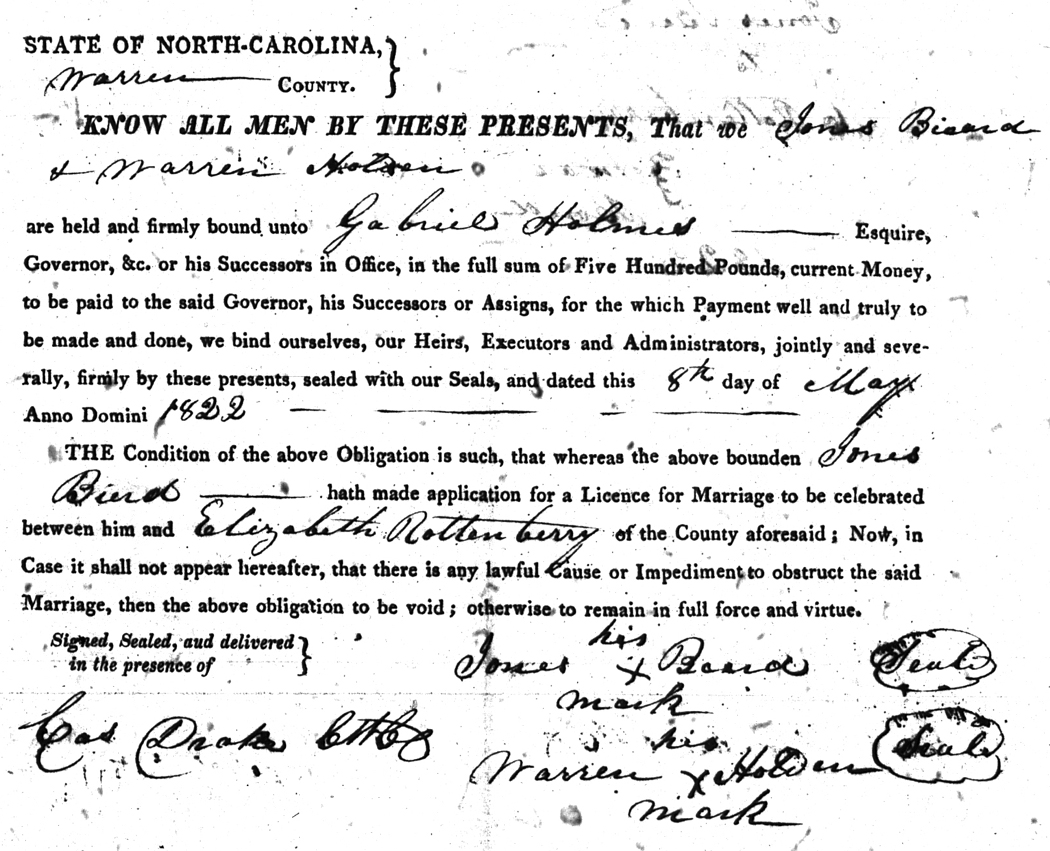 STATE OF NORTH-CAROLINA,
Warren COUNTY.
KNOW ALL MEN BY THESE PRESENTS, That we Jones Bieard
& Warren Holden
are held and firmly bound unto Gabriel Holmes Esquire,
Governor, &c. or his Successors in Office, in the full sum of Five Hundred Pounds, current Money,
to be paid to the said Governor, his Successors or Assigns, for the which Payment well and truly to
be made and done, we bind ourselves, our Heirs, Executors and Administrators, jointly and seve-
rally, firmly by these presents, sealed with our Seals, and dated this 8th day of May
Anno Domini 1822
THE Condition of the above Obligation is such, that whereas the above bounden Jones
Bierd hath made application for a Licence for Marriage to be celebrated
between him and Elizabeth Rottenberry of the County aforesaid; Now, in
Case it shall not appear hereafter, that there is any lawful Cause or Impediment to obstruct the said
Marriage, then the above obligation to be void; otherwise to remain in full force and virtue.
Signed, Sealed, aud delivered
in the presence of
his
Jones X Beard Seal
mark
Cas Drake
his
Warren X Holden Seal
mark